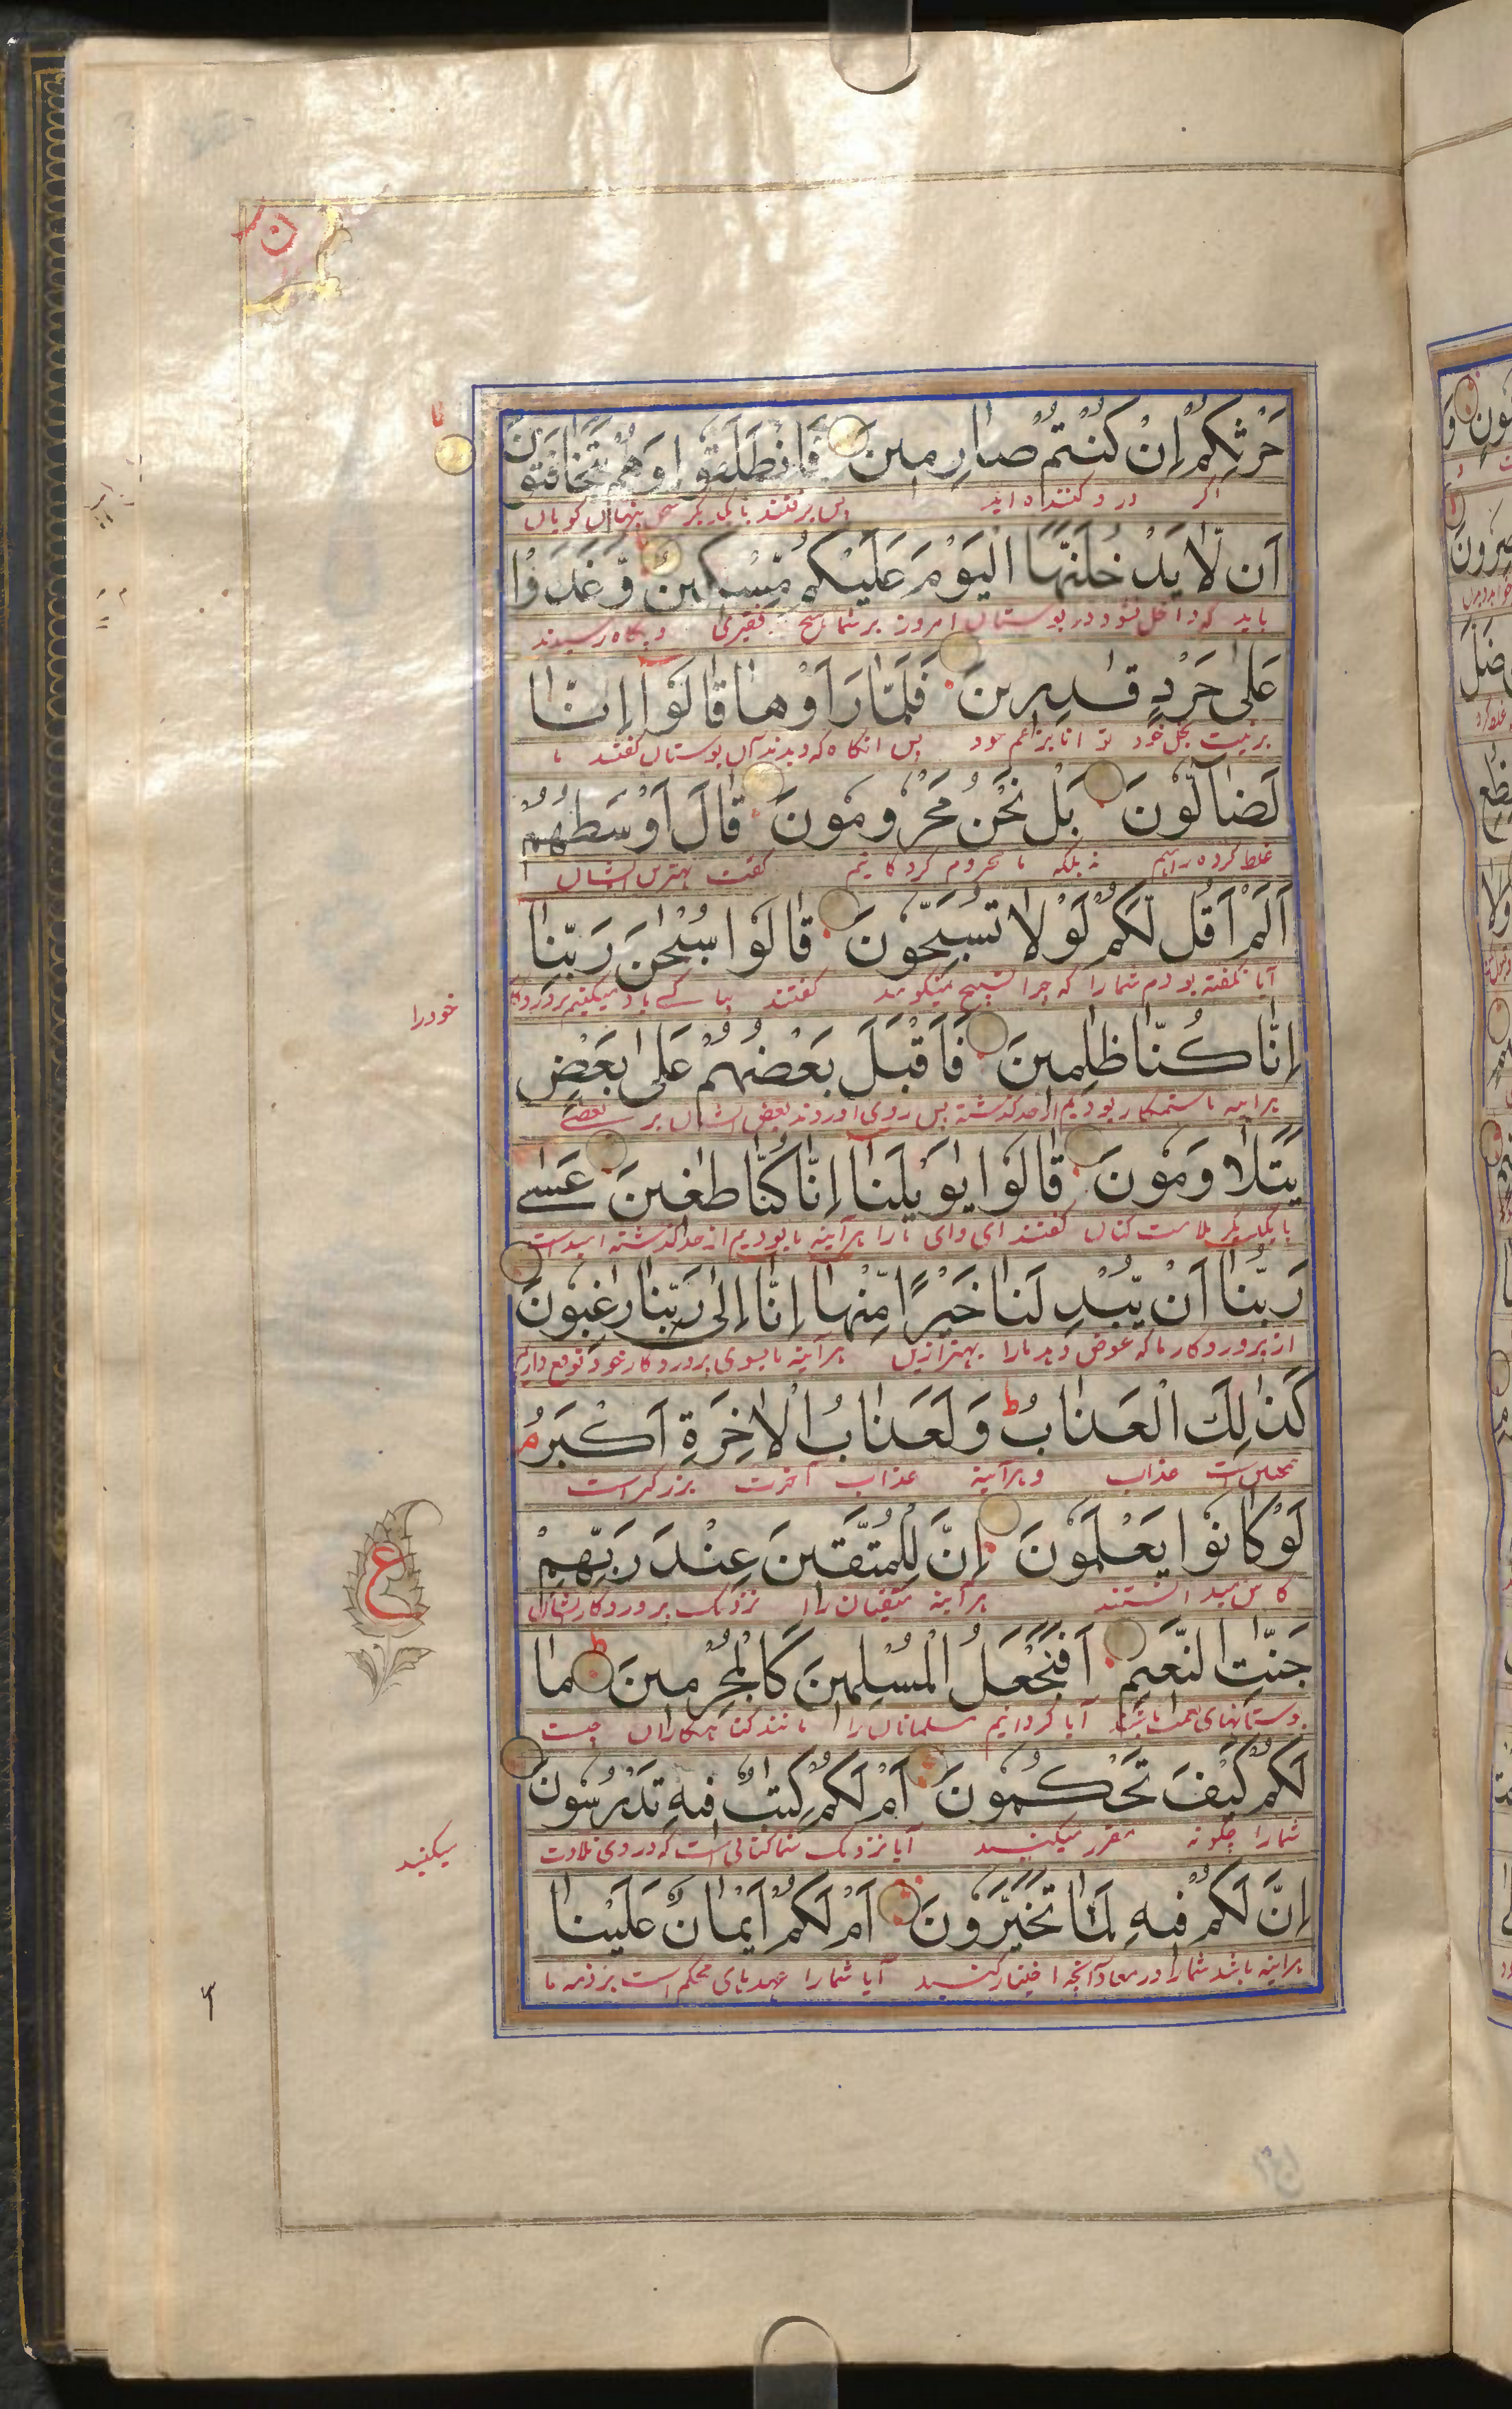 ن
حَرْثِكُمْ اِنْ كُنْتُمْ صَارِمِينَ فَانْطَلَقُوا وَهُمْ يَتَخَافَتُونَ
اگر درو کننده اید پس برفتند با یکدیگر سخن پنهان گویان
اَنْ لَّا يَدْخُلَنَّهَا الْيَوْمَ عَلَيْكُمْ مِّسْكِينٌ وَّغَدَوْا
باید که داخل نشود در بوستان امروز بر شما هیچ فقیری و پگاه رسیدند
عَلٰى حَرْدٍ قٰدِرِينَ فَلَمَّا رَاَوْهَا قَالُوْا اِنَّا
پس آنگاه که دیدند آن بوستان گفتند ما
لَضَآلُّونَ بَلْ نَحْنُ مَحْرُومُونَ قَالَ اَوْسَطُهُمْ
غلط کرده راهیم نه بلکه ما محروم کردگانیم گفت بهترین ایشان
اَلَمْ اَقُلْ لَّكُمْ لَوْلَا تُسَبِّحُونَ قَالُوْا سُبْحٰنَ رَبِّنَا
آیا نگفته بودم شما را که چرا تسبیح نمیگویید گفتند بپاکی یاد میکنیم پروردگار
خودرا
اِنَّا كُنَّا ظٰلِمِينَ فَاَقْبَلَ بَعْضُهُمْ عَلٰى بَعْضٍ
هرآینه ما ستمکار بودیم از حد گذشته پس روی آوردند بعض ایشان بر بعضے
يَتَلَاوَمُونَ قَالُوْا يٰوَيْلَنَا اِنَّا كُنَّا طٰغِينَ عَسٰے
با یکدیگر ملامت کنان گفتند ای وای ما را هرآینه ما بودیم از حد گذشته امیدست
رَبُّنَا اَنْ يُّبْدِلَنَا خَيْرًا مِّنْهَا اِنَّا اِلٰى رَبِّنَا رٰغِبُونَ
از پروردگار ما که عوض دهد ما را بهتر ازین هرآینه ما بسوی پروردگار خود توقع داریم
كَذٰلِكَ الْعَذَابُ ط وَلَعَذَابُ الْاٰخِرَةِ اَكْبَرُ م
عذاب و هرآینه عذاب آخرت بزرگتر است
لَوْ كَانُوْا يَعْلَمُونَ اِنَّ لِلْمُتَّقِينَ عِنْدَ رَبِّهِمْ
کاش میدانستند هرآینه متقیان را نزدیک پروردگار ایشان
ع
جَنّٰتِ النَّعِيمِ اَفَنَجْعَلُ الْمُسْلِمِينَ كَالْمُجْرِمِينَ ط مَا
بوستانهای نعمت باشد آیا گردانیم مسلمانان را مانند گناهگاران چیست
لَكُمْ كَيْفَ تَحْكُمُونَ اَمْ لَكُمْ كِتٰبٌ فِيهِ تَدْرُسُونَ
شما را چگونه مقرر میکنید آیا نزدیک شما کتابی است که در وی تلاوت
میکنید
اِنَّ لَكُمْ فِيهِ لَمَا تَخَيَّرُونَ اَمْ لَكُمْ اَيْمَانٌ عَلَيْنَا
هرآینه باشد شما را در معاد آنچه اختیار کنید آیا شما را عهدهای محکم است بر ذمه ما